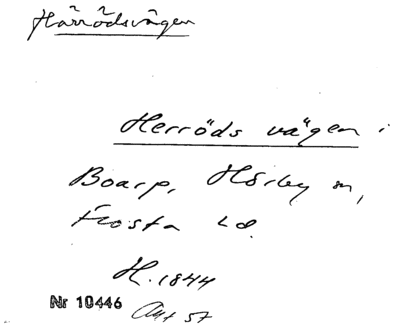 Härrödsvägen
Herröds vägen i
Boarp, Hörby sn,
Frosta hd.
H. 1844
Nr 10446
Akt 57